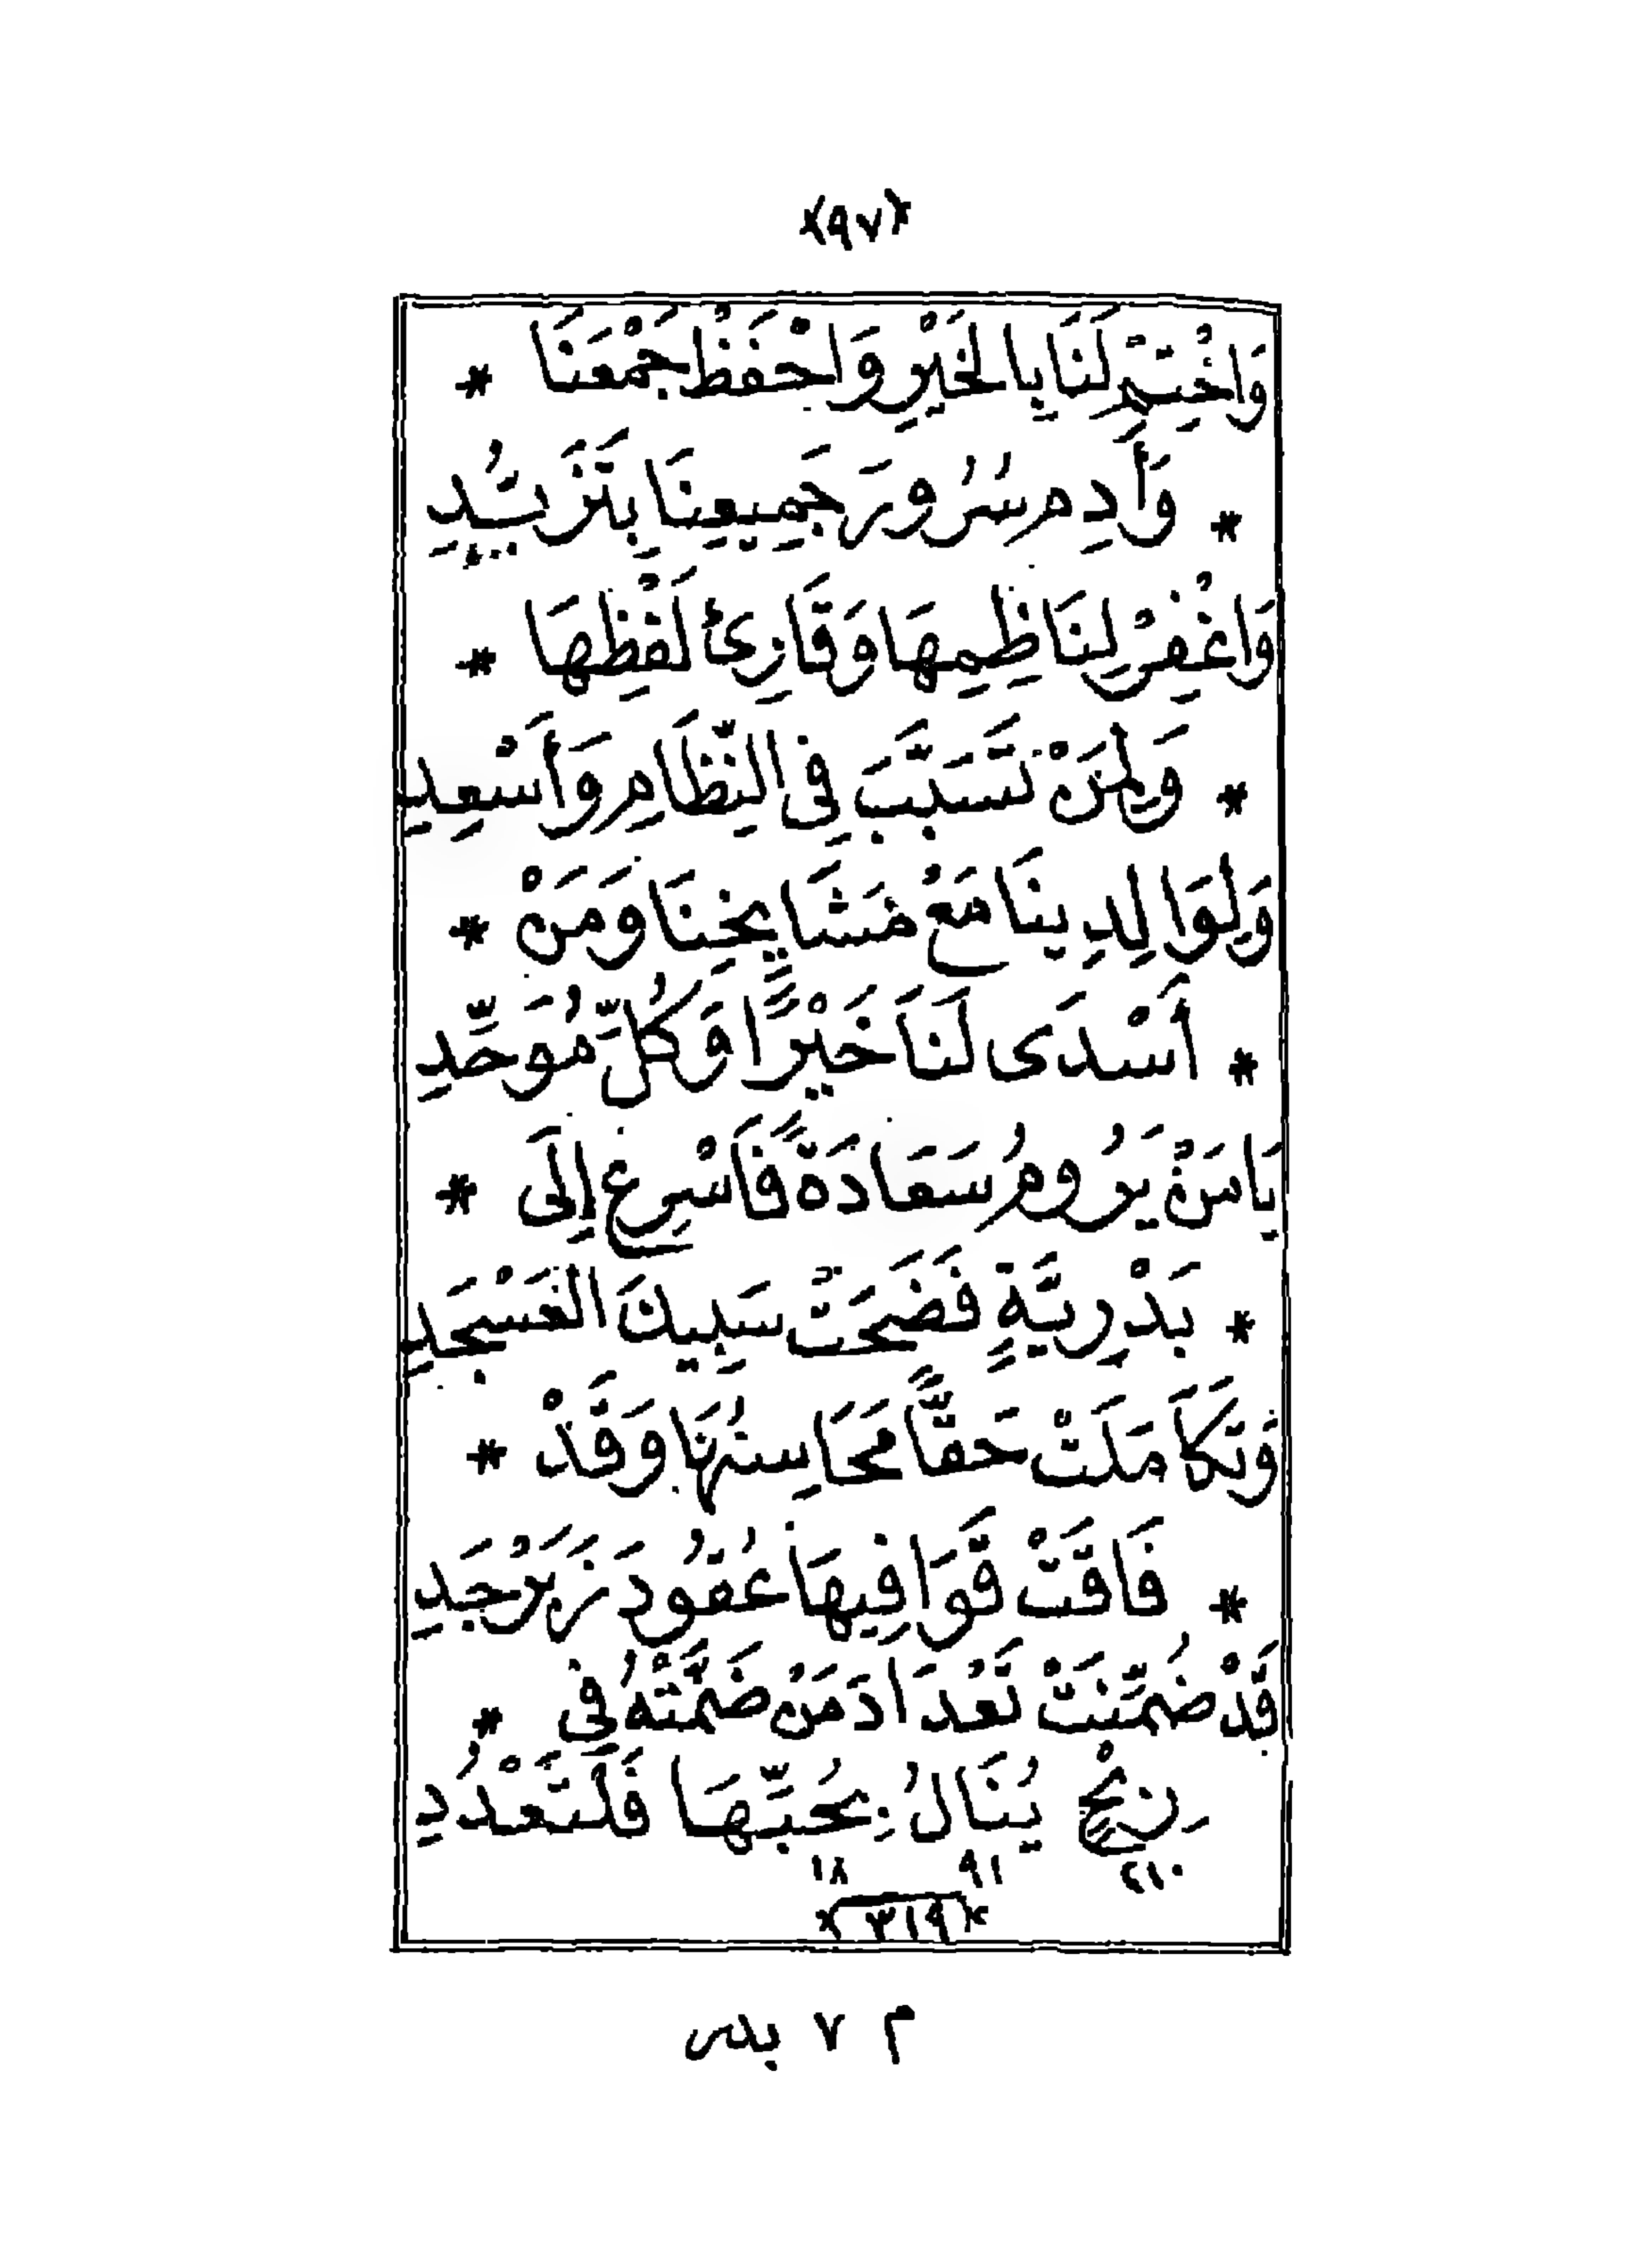 ﴿٩٧﴾
وَاخْتِمْ لَنَا بِالْخَيْرِ وَاحْفَظْ جَمْعَنَا *
* وَأَدِمْ سُرُورَ جَمِيعِنَا بِتَرَشُّدِ
وَاغْفِرْ لِنَاظِمِهَا وَقَارِئِ لَفْظِهَا *
* وَلِمَنْ تَسَبَّبَ فِي النِّظَامِ وَأَسْعِدِ
وَلِوَالِدِينَا مَعْ مَشَايِخِنَا وَمَنْ *
* أَسْدَى لَنَا خَيْرًا وَكُلِّ مُوَحِّدِ
يَا مَنْ يَرُومُ سَعَادَةً فَأَسْرِعْ إِلَى *
* بَدْرِيَّةٍ فَضَحَتْ سَبِيكَ الْعَسْجَدِ
وَتَكَامَلَتْ حَقًّا مَحَاسِنُهَا وَقَدْ *
* فَاقَتْ قَوَافِيهَا عُقُودَ زَبَرْجَدِ
قَدْ ضُمِّنَتْ تَعْدَادَ مَنْ ضَمَّتْهُ فِي *
يُنَالُ بِحُبِّهَا فَلْتَعْدُدِ
٢١٠ ٩١ ١٨
﴿٣١٩﴾
م ٧ بدر